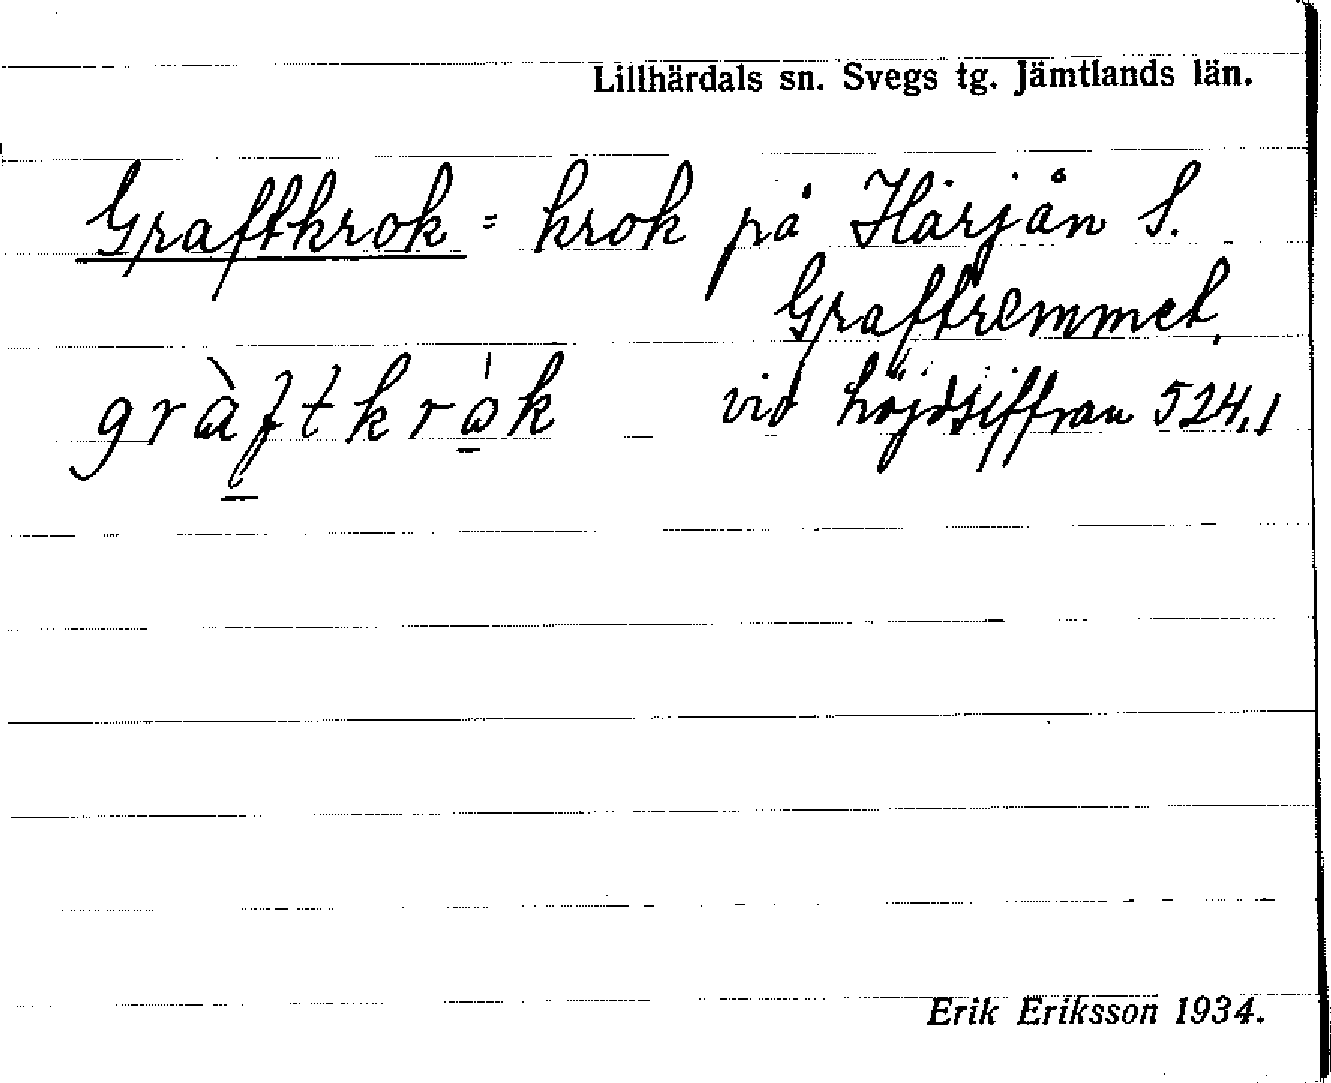 Lillhärdals sn. Svegs tg. Jämtlands län.
Graftkrok = krok på Härjån S.
Graftremmet,
gràftkrok vid höjdsiffran 524,1
Erik Eriksson 1934.